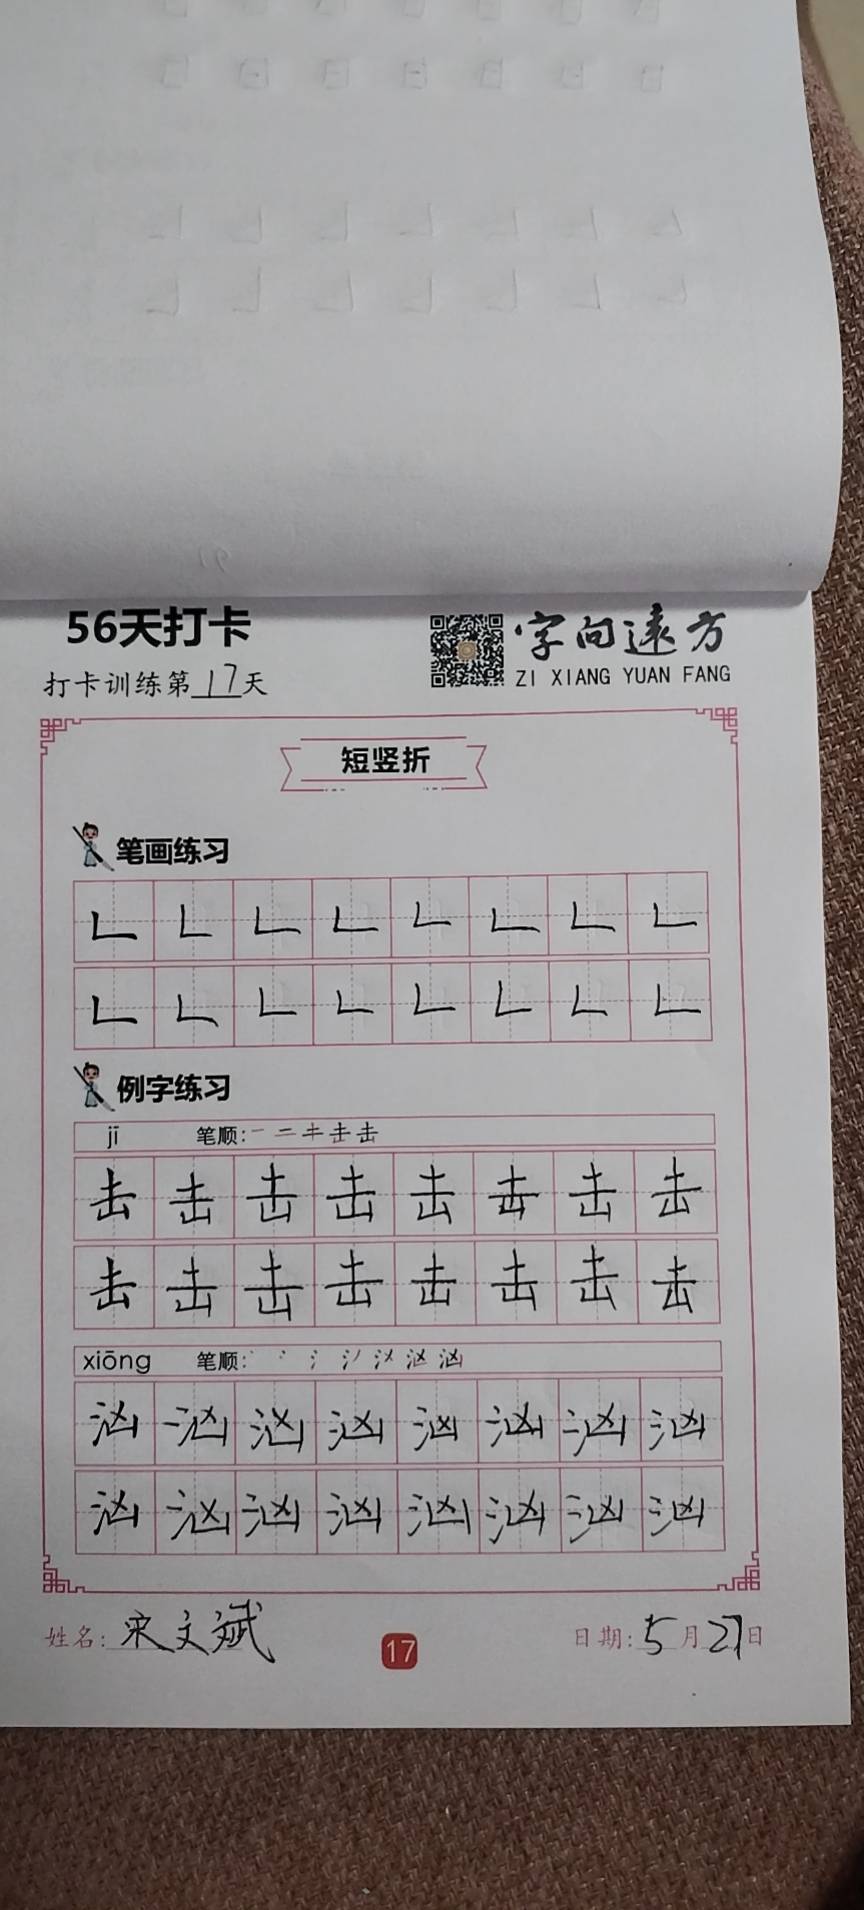 56天打卡
字向远方
打卡训练第17天
ZI XIANG YUAN FANG
短竖折
笔画练习
𠃊 𠃊 𠃊 𠃊 𠃊 𠃊 𠃊 𠃊
𠃊 𠃊 𠃊 𠃊 𠃊 𠃊 𠃊 𠃊
例字练习
jī 笔顺:一 二 キ 击 击
击 击 击 击 击 击 击 击
击 击 击 击 击 击 击 击
xiōng 笔顺:丶 冫 氵 汹
汹 汹 汹 汹 汹 汹 汹 汹
汹 汹 汹 汹 汹 汹 汹 汹
姓名:宋文斌 17 日期:5月27日